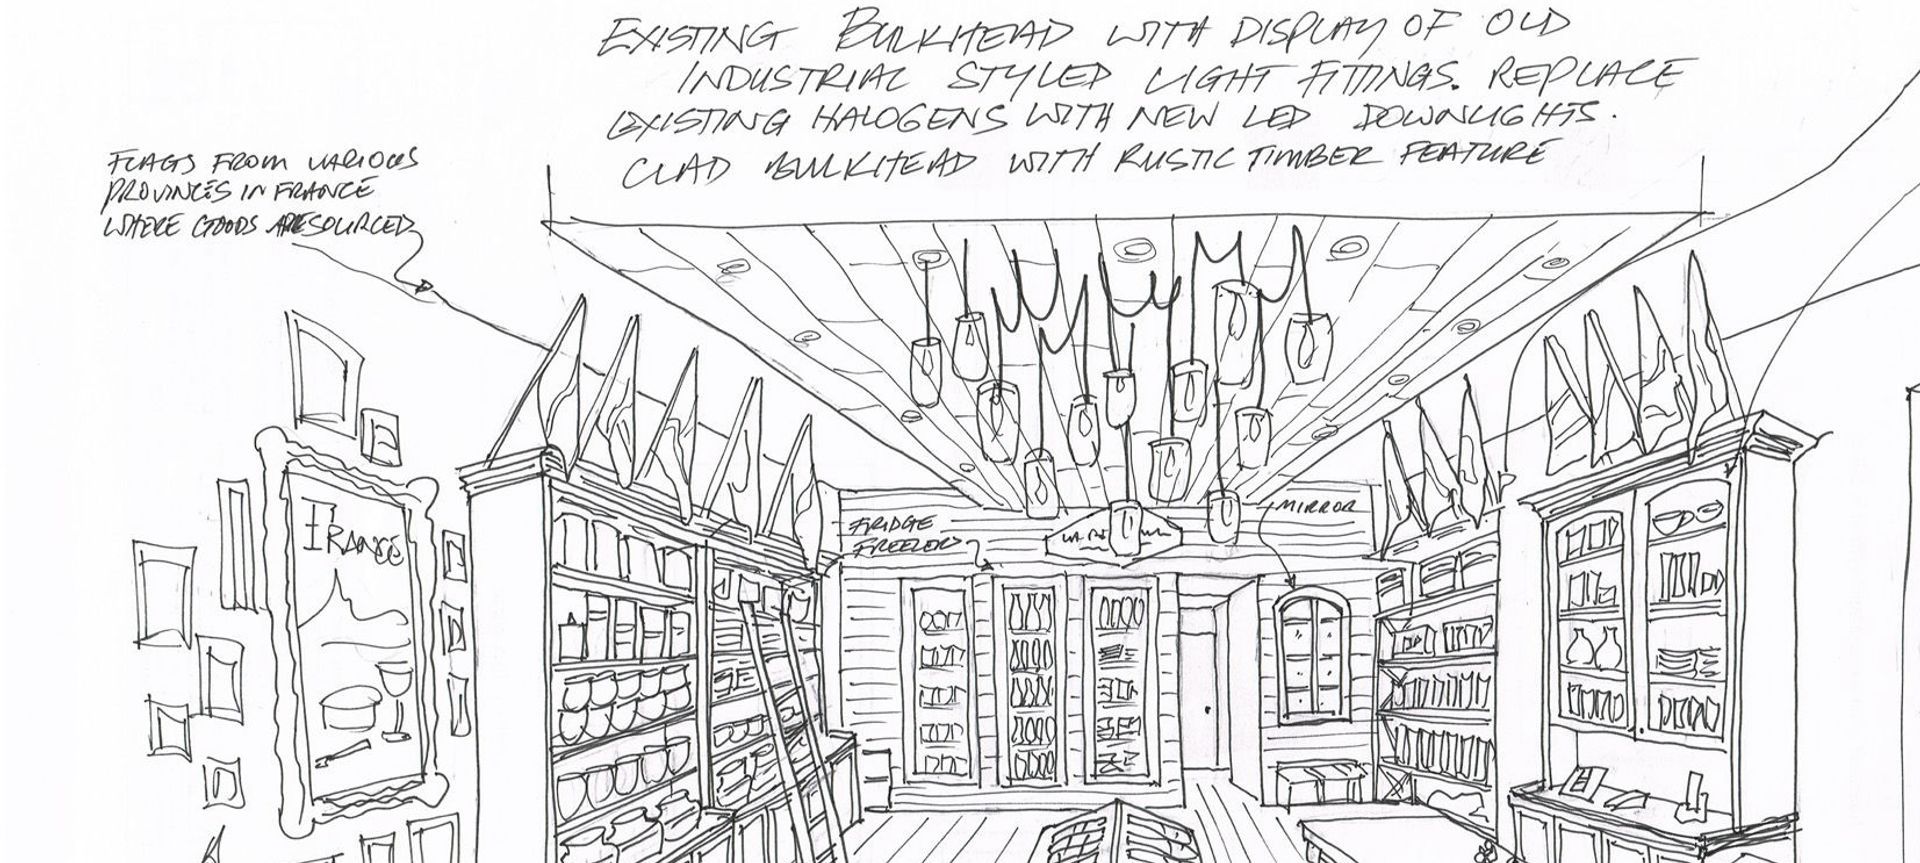 EXISTING BULKHEAD WITH DISPLAY OF OLD
INDUSTRIAL STYLED LIGHT FITTINGS. REPLACE
EXISTING HALOGENS WITH NEW LED DOWNLIGHTS.
CLAD BULKHEAD WITH RUSTIC TIMBER FEATURE
FLAGS FROM VARIOUS
PROVINCES IN FRANCE
WHERE GOODS ARE SOURCED
FRANCE
FRIDGE
FREEZERS
MIRROR